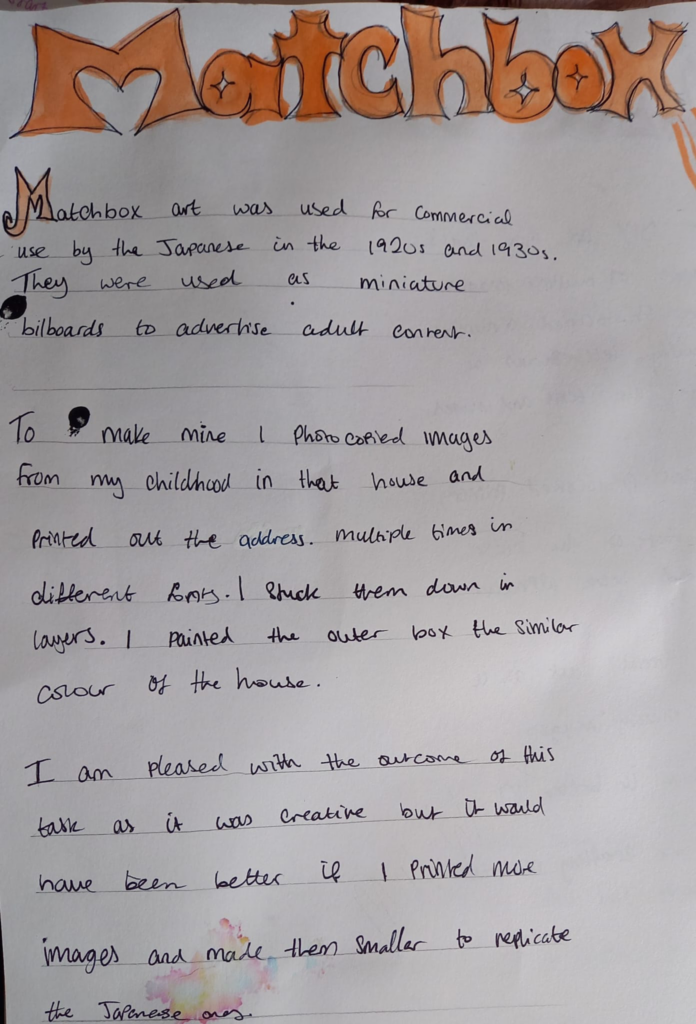 Matchbox
Matchbox art was used for commercial
use by the Japanese in the 1920s and 1930s.
They were used as miniature
bilboards to advertise adult content.
To make mine I photocopied images
from my childhood in that house and
Printed out the address. multiple times in
different fonts. I stuck them down in
layers. I painted the outer box the similar
colour of the house.
I am pleased with the outcome of this
task as it was creative but it would
have been better if I printed more
images and made them smaller to replicate
the Japanese ones.